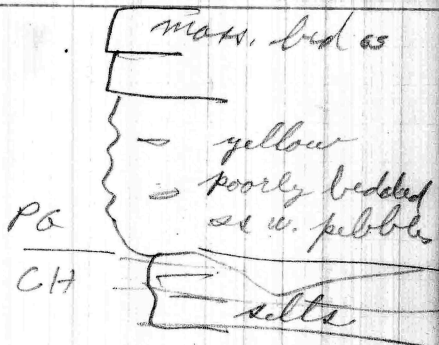 mass. bed ss
yellow
poorly bedded
ss w. pebbles
PG
CH
silts